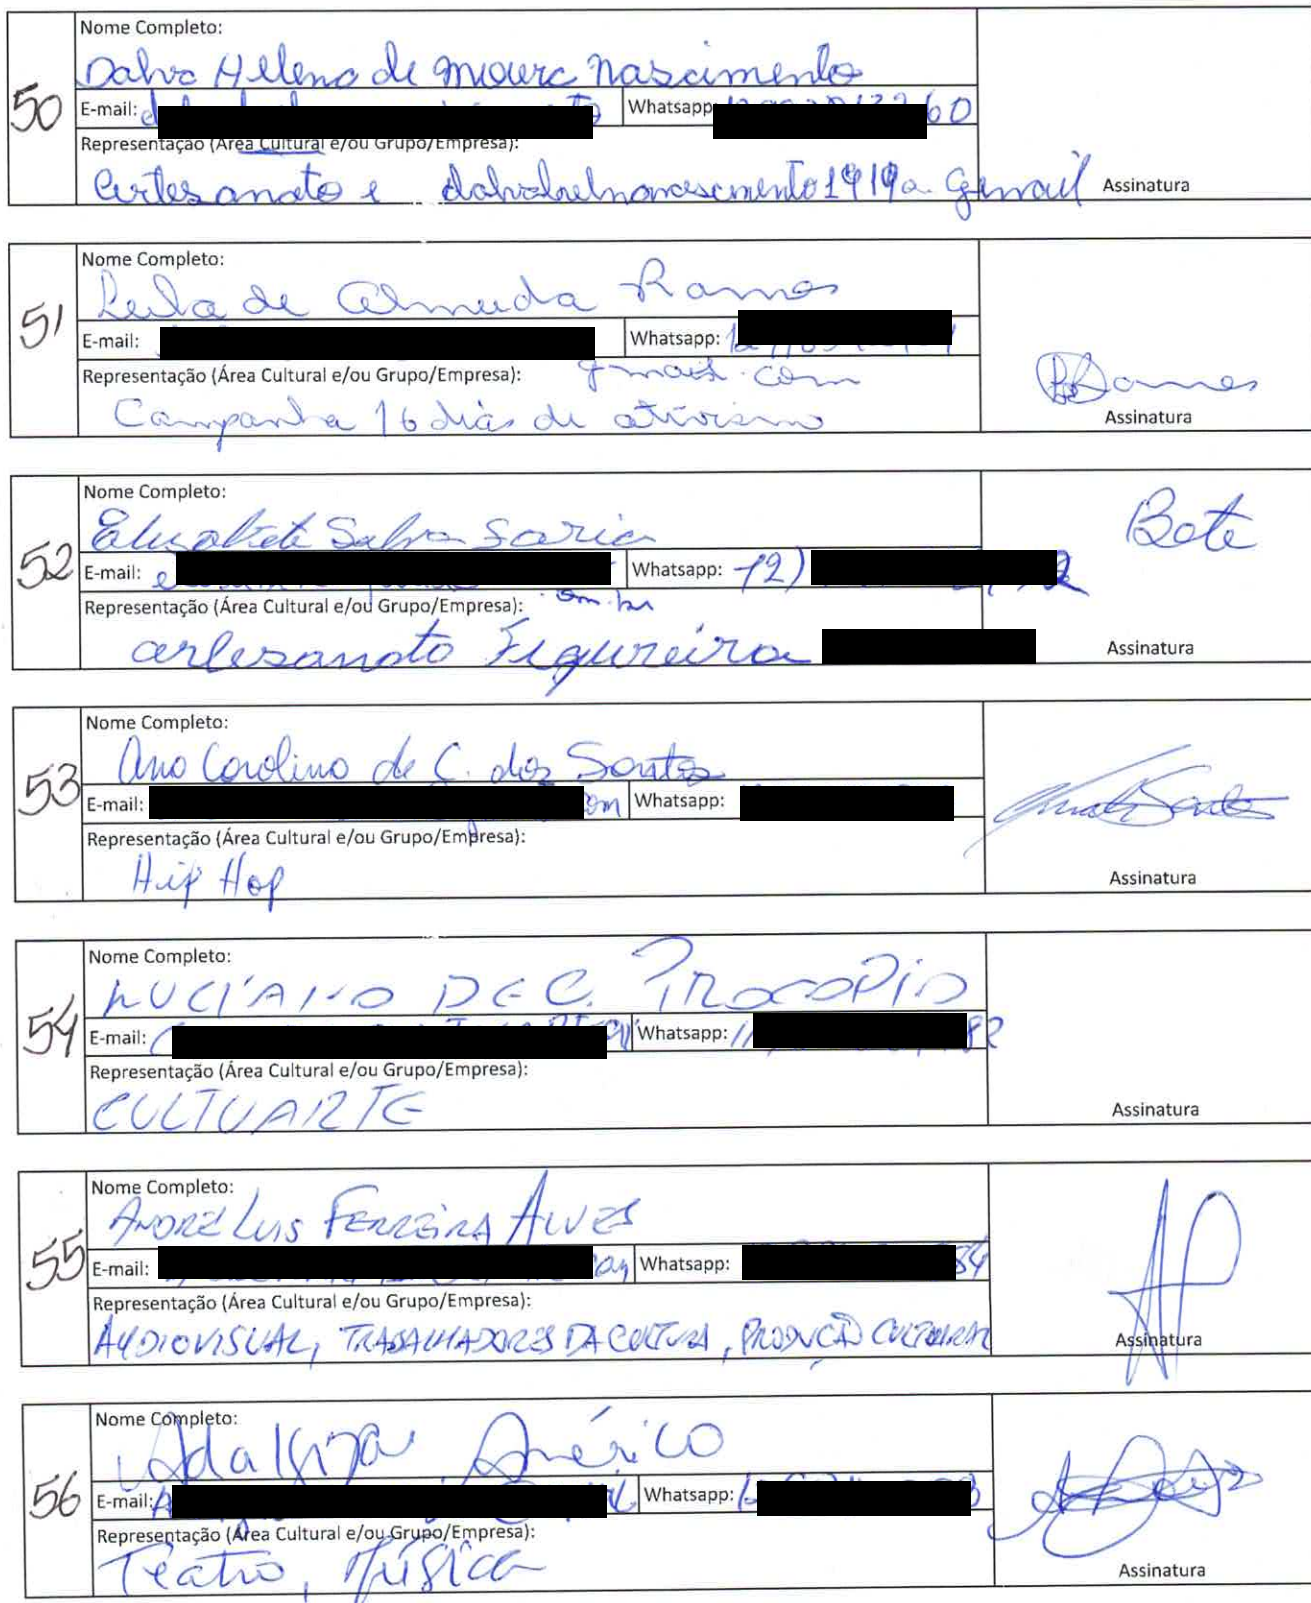 Nome Completo:
Dalva Helena de Moura Nascimento
50
E-mail: Whatsapp: 60
Representação (Área Cultural e/ou Grupo/Empresa):
Artesanato e Gmail Assinatura
Nome Completo:
Leila de Almeida Ramos
51
E-mail: Whatsapp:
Representação (Área Cultural e/ou Grupo/Empresa): gmail.com
Campanha 16 dias de ativismo
Ramos
Assinatura
Nome Completo:
Elizabete Salva Faria
Bete
52
E-mail: e Whatsapp: 12)
Representação (Área Cultural e/ou Grupo/Empresa): om.br
artesanato Figureira
Assinatura
Nome Completo:
Ana Carolina de C. dos Santos
53
E-mail: om Whatsapp:
Representação (Área Cultural e/ou Grupo/Empresa):
Hip Hop
Assinatura
Nome Completo:
LUCIANO DE C. PROCOPIO
54
E-mail: Whatsapp: 11 82
Representação (Área Cultural e/ou Grupo/Empresa):
CULTUARTE
Assinatura
Nome Completo:
ANDRE LUIS FERREIRA ALVES
55
E-mail: Whatsapp: 84
Representação (Área Cultural e/ou Grupo/Empresa):
AUDIOVISUAL, TRABALHADORES DA CULTURA, PRODUÇÃO CULTURAL
Assinatura
Nome Completo:
Adalgiza Américo
56
E-mail: A Whatsapp:
Representação (Área Cultural e/ou Grupo/Empresa):
Teatro, Música
Assinatura